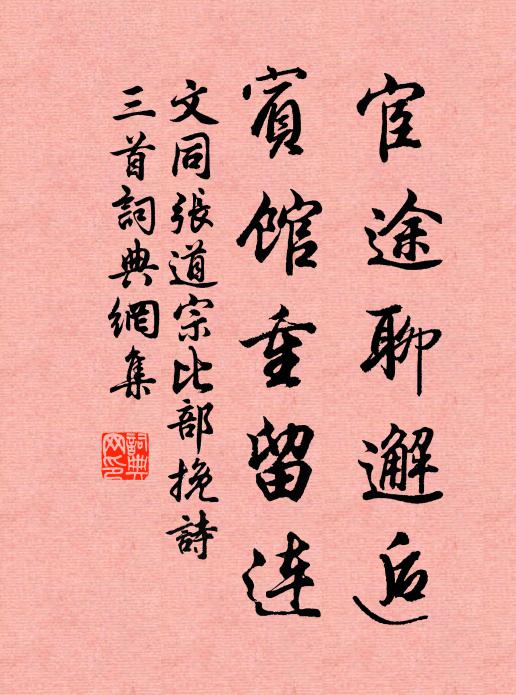 宦途聊邂逅
賓館重留連
文同張道宗比部挽詩
三首詞典網集
詞典网印